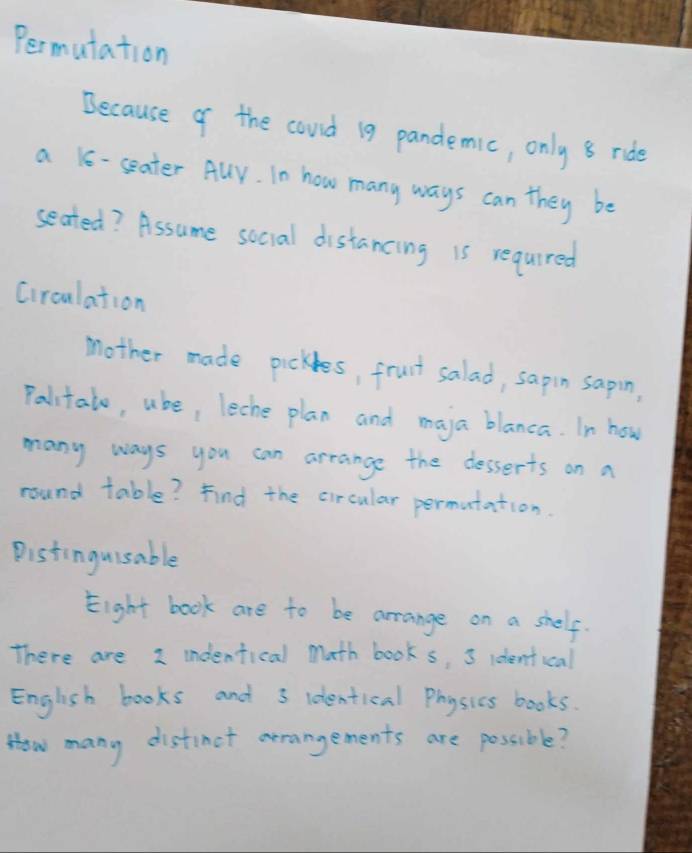 Permutation
Because of the covid 19 pandemic, only 8 ride
a 16-seater AUV. In how many ways can they be
seated? Assume social distancing is required
Circulation
Mother made pickles, fruit salad, sapin sapin,
Palitaw, ube, leche plan and maja blanca. In how
many ways you can arrange the desserts on a
round table? Find the circular permutation.
Distinguisable
Eight book are to be arrange on a shelf.
There are 2 indentical Math books, 3 identical
English books and 3 identical Physics books.
How many distinct arrangements are possible?